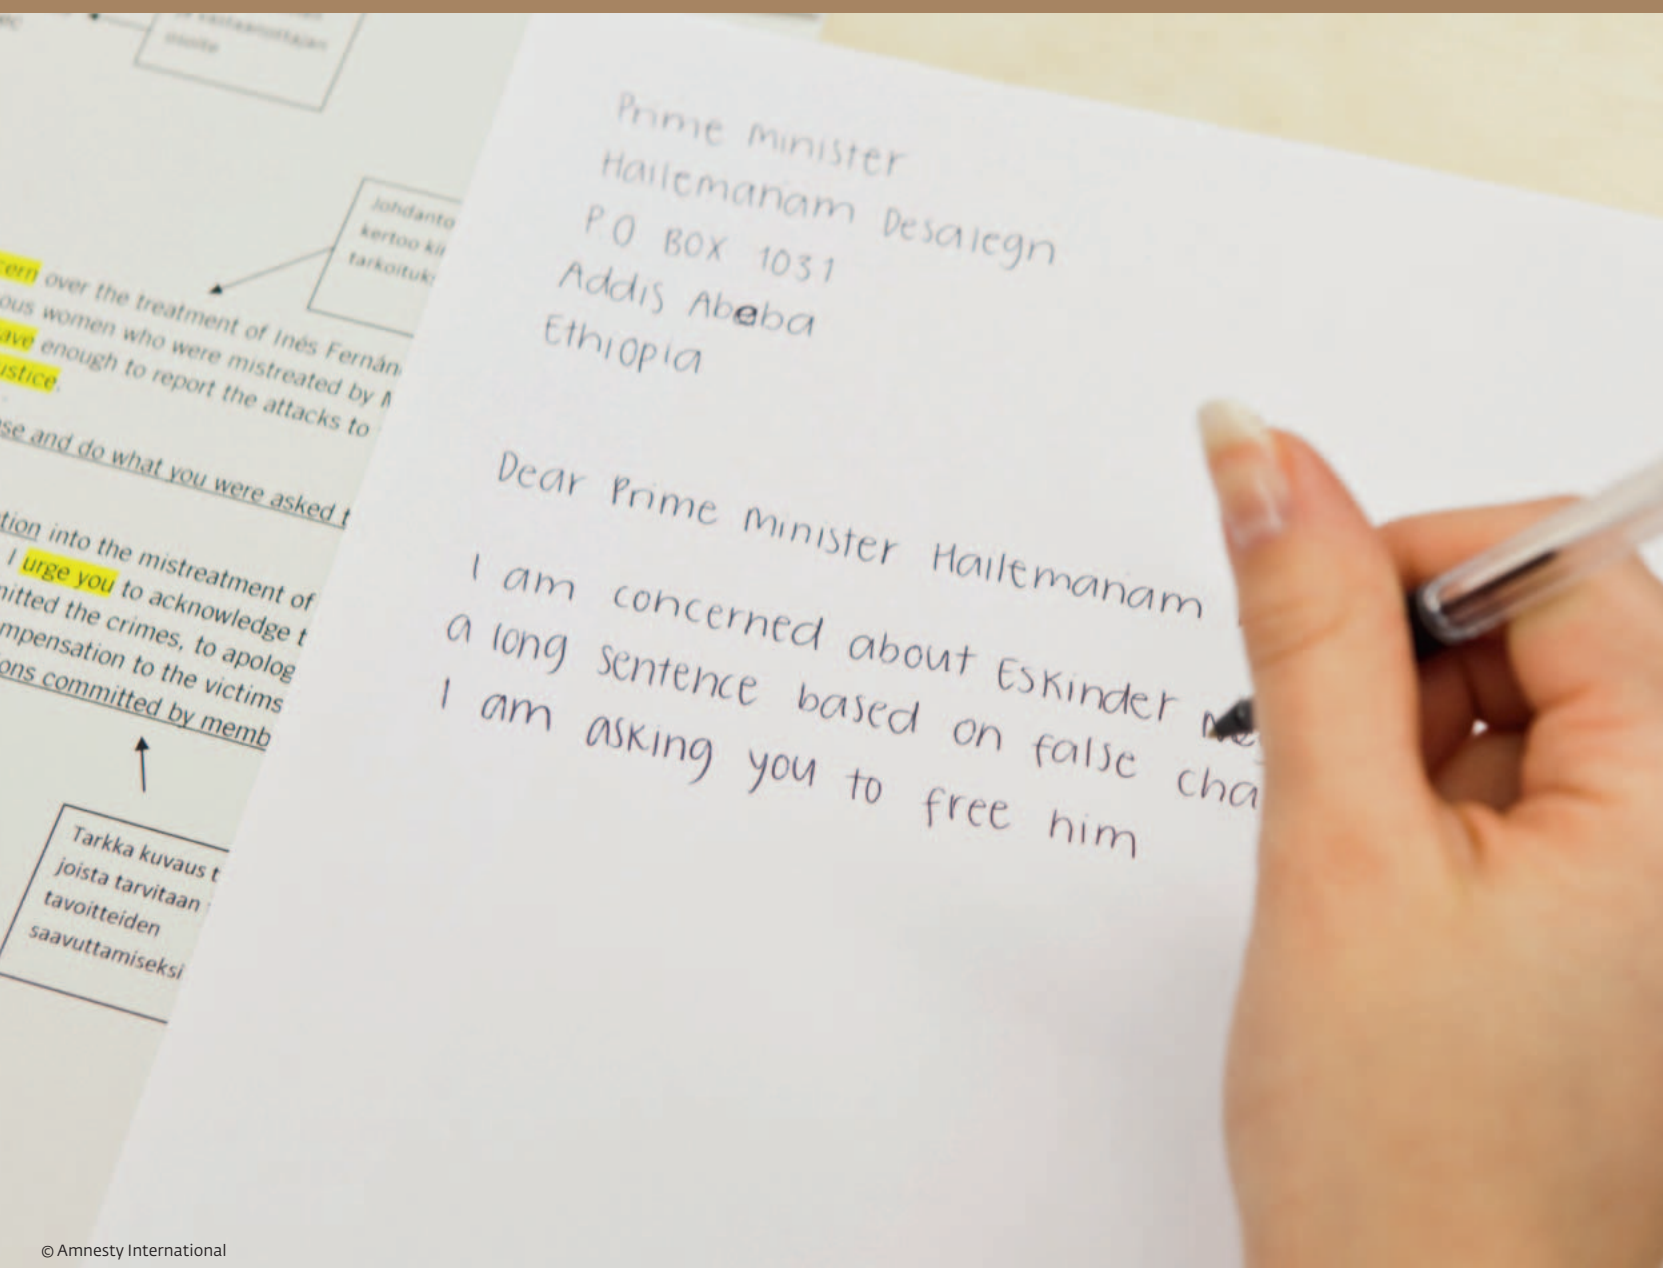 osoite
Johdanto
kertoo
tarkoituk
cern over the treatment of Inés Fernán
ous women who were mistreated by M
ave enough to report the attacks to
ustice.
se and do what you were asked t
tion into the mistreatment of
I urge you to acknowledge t
mitted the crimes, to apolog
mpensation to the victims
ons committed by memb
Tarkka kuvaus t
joista tarvitaan
tavoitteiden
saavuttamiseksi
Prime Minister
Hailemariam Desalegn
P O BOX 1031
Addis Ababa
Ethiopia
Dear Prime Minister Hailemariam
I am concerned about Eskinder Ne
a long sentence based on false cha
I am asking you to free him
© Amnesty International